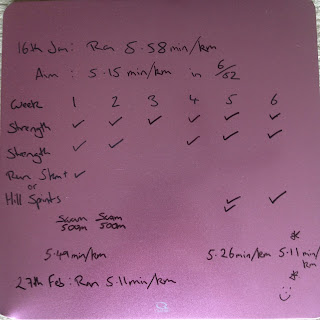 16th Jan: Ran 5.58 min/km
Aim: 5.15 min/km in 6/52
Week 1 2 3 4 5 6
Strength ✓ ✓ ✓ ✓ ✓ ✓
Strength ✓ ✓ ✓ ✓ ✓
Run 5km+ ✓
or
Hill Sprints ✓ ✓
✓
Swam Swam
500m 500m
5.49 min/km 5.26 min/km 5.11 min/km
27th Feb: Ran 5.11 min/km